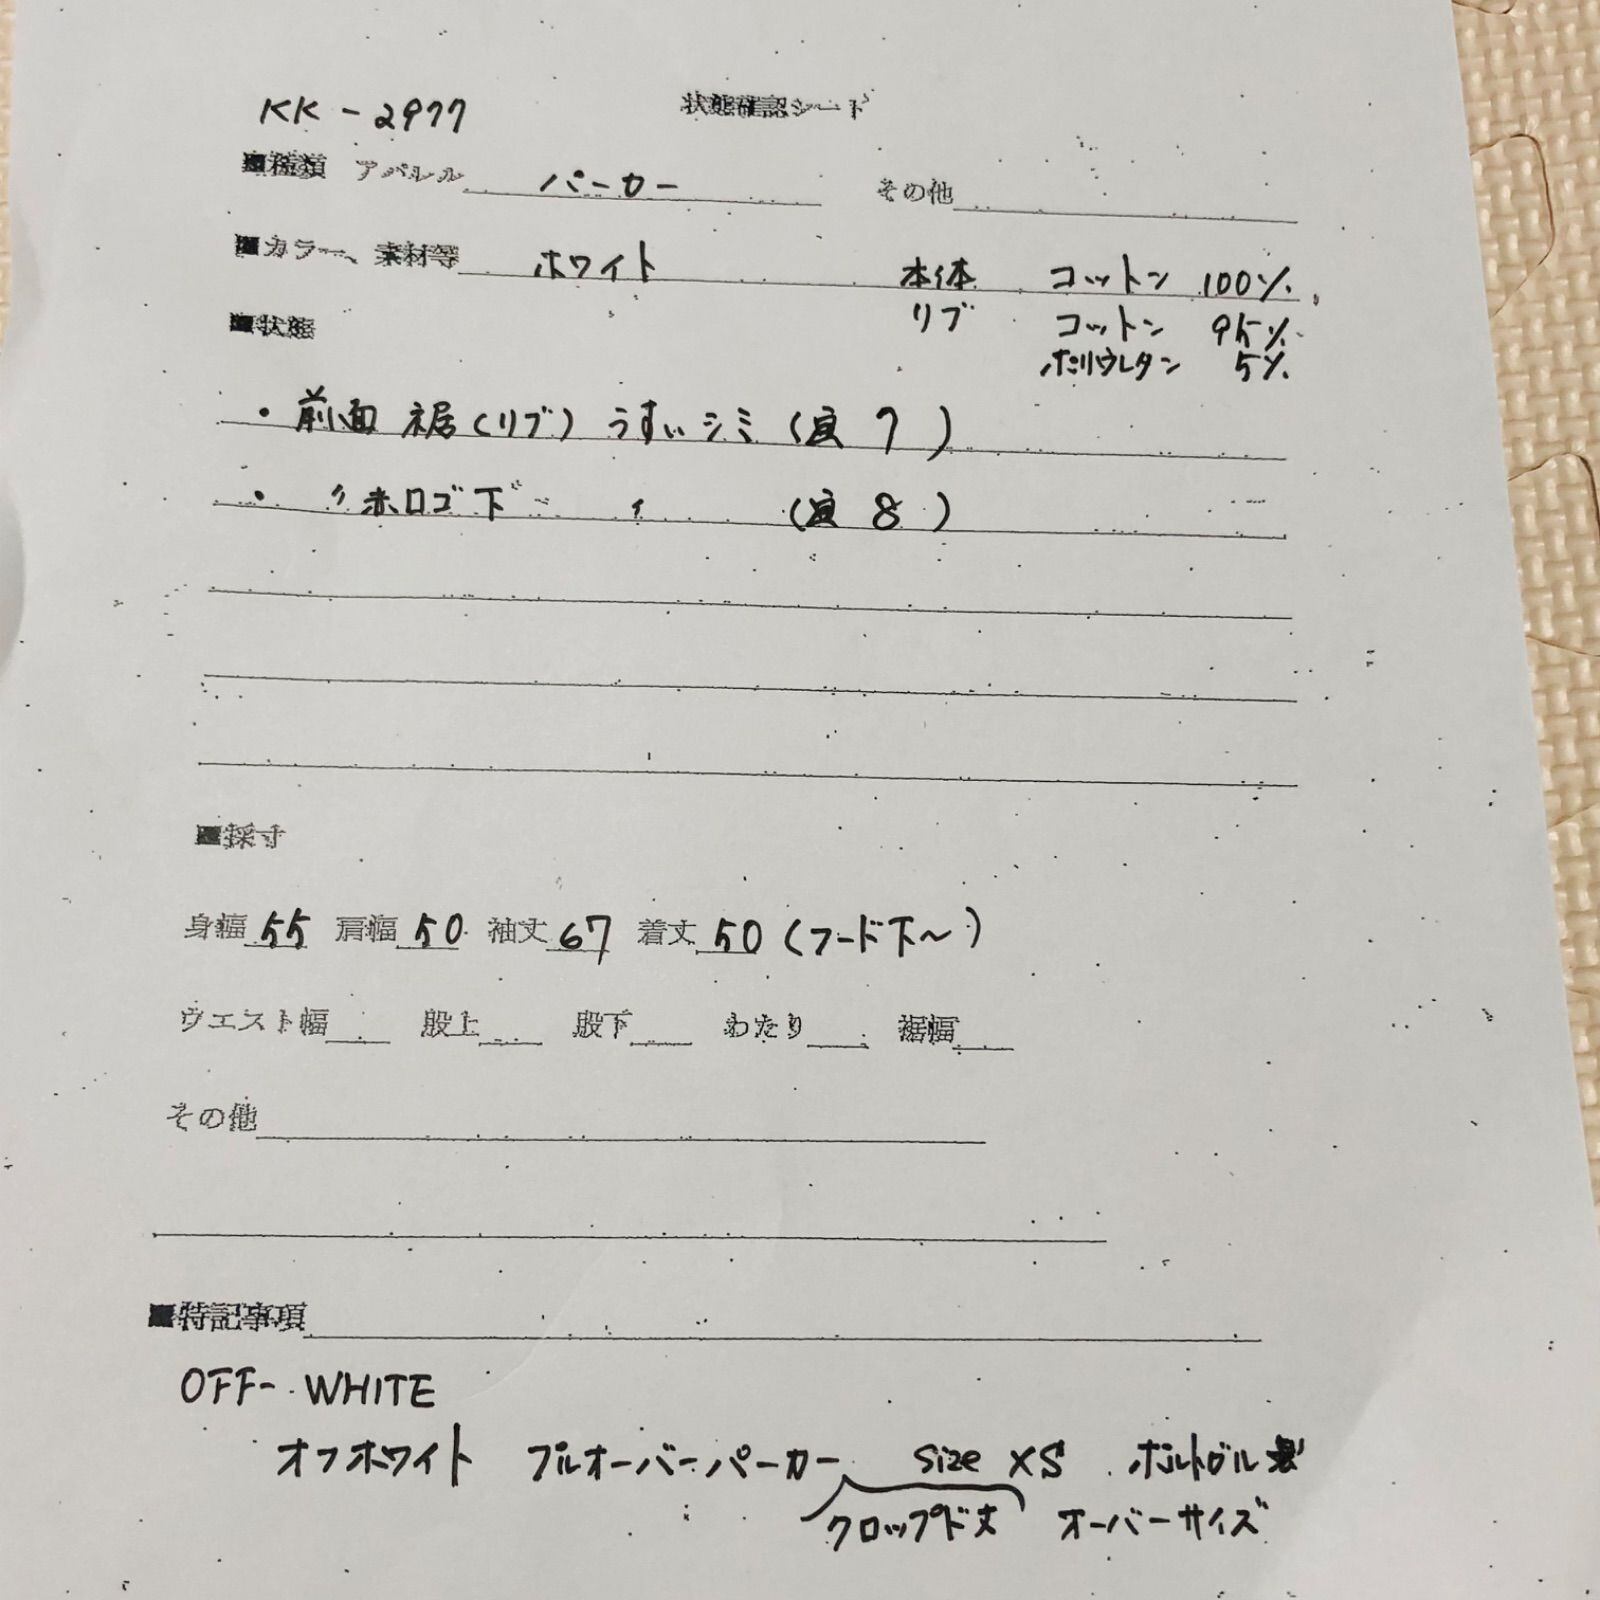 KK-2977 状態確認シート
■種類 アパレル パーカー その他
■カラー、素材等 ホワイト 本体 コットン 100%
リブ コットン 95%
■状態
ポリウレタン 5%
・前面 裾(リブ) うすいシミ ( 7 )
・ 〃 赤ロゴ下 〃 ( 8 )
■採寸
身幅 55 肩幅 50 袖丈 67 着丈 50 (フード下〜)
ウエスト幅 股上 股下 わたり 裾幅
その他
■特記事項
OFF-WHITE
オフホワイト プルオーバーパーカー size XS ポルトガル製
クロップド丈 オーバーサイズ